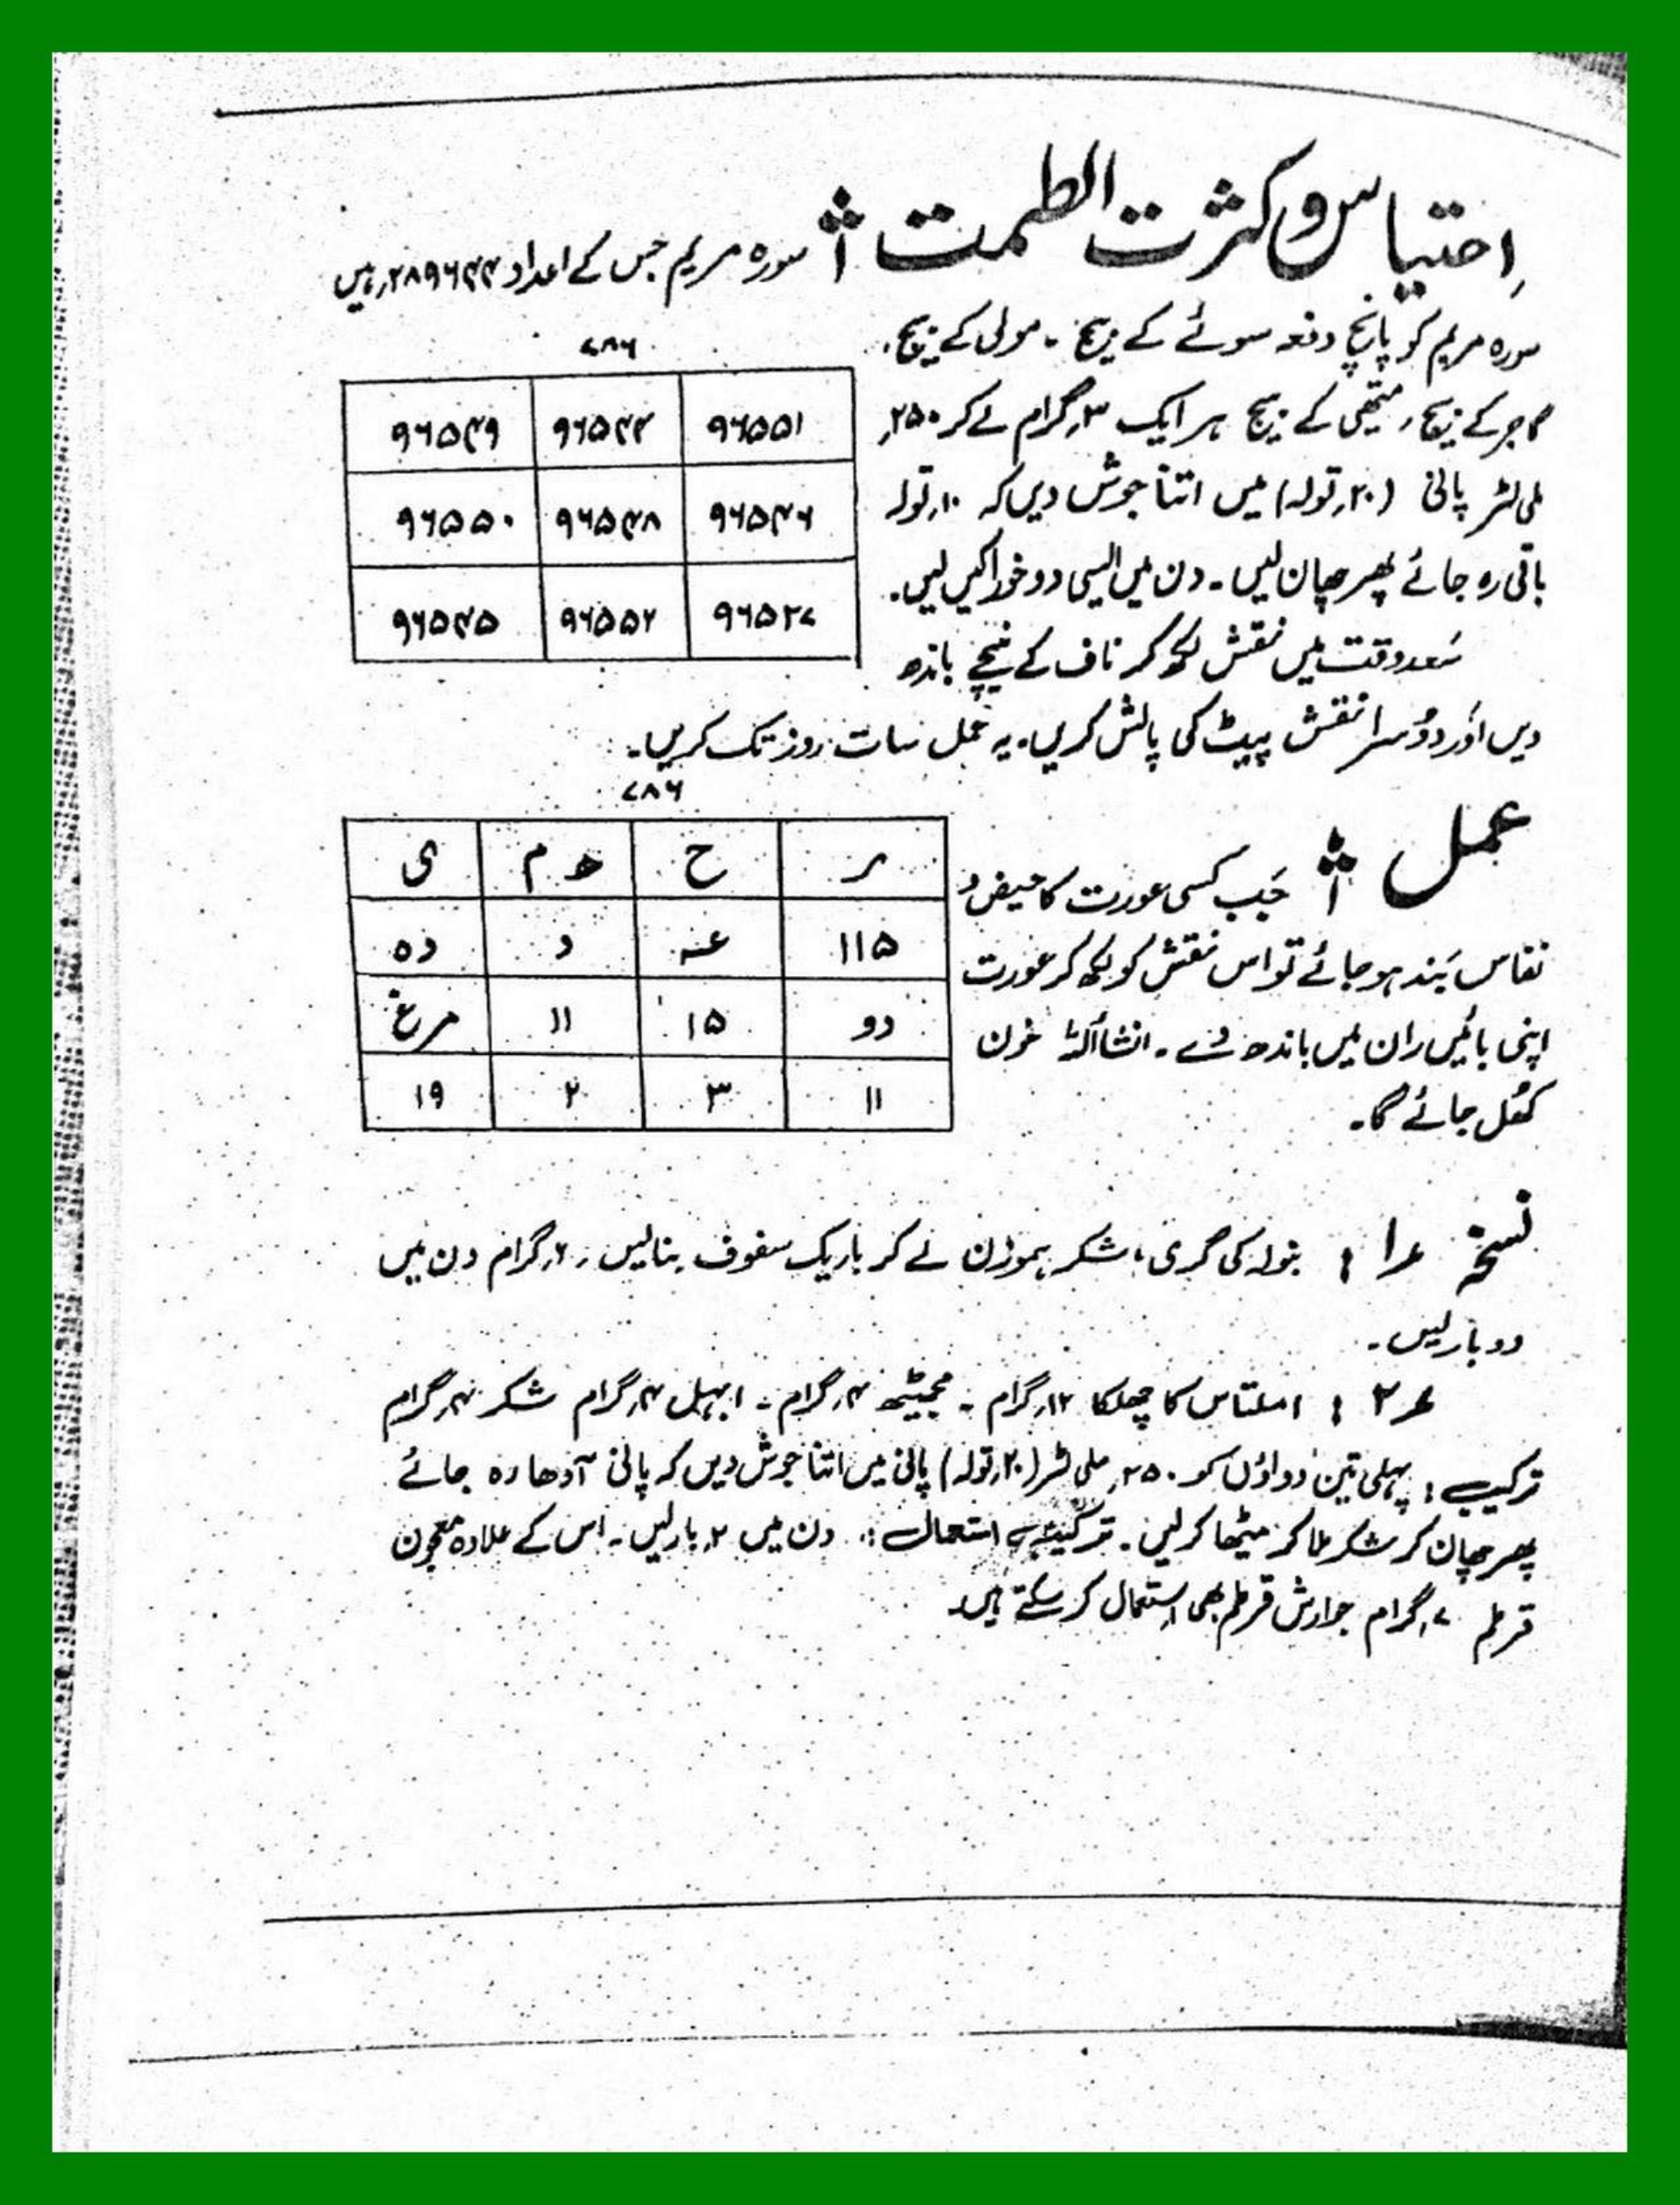 احتباس و کثرت الطمث : سورہ مریم جس کے اعداد ۲۸۹۶۴۴ ہیں
سورہ مریم کو پانچ دفعہ سوئے کے بیج ۔ مولی کے بیج،
گاجر کے بیج، میتھی کے بیج ہر ایک ۳ گرام لے کر ۲۵۰
ملی لٹر پانی (۲۰ تولہ) میں اتنا جوش دیں کہ ۱۰ تولہ
باقی رہ جائے پھر چھان لیں ۔ دن میں ایسی دو خوراکیں لیں ۔
سَعد وقت میں نقش لکھ کر ناف کے نیچے باندھ
۷۸۶
۹۶۵۵۱ ۹۶۵۴۴ ۹۶۵۴۹
۹۶۵۴۶ ۹۶۵۴۸ ۹۶۵۵۰
۹۶۵۴۷ ۹۶۵۵۲ ۹۶۵۴۵
دیں اور دوُسرا نقش پیٹ کی پالش کریں ۔ یہ عمل سات روز تک کریں ۔
عمل : جَب کسی عورت کا حیض و
نفاس بَند ہو جائے تو اس نقش کو لکھ کر عورت
اپنی بائیں ران میں باندھ دے ۔ انشأاللہ خون
کھُل جائے گا ۔
۷۸۶
ر ح ھ م ی
۱۱۵ عہ د دہ
دو ۱۵ ۱۱ مرغ
۱۱ ۳ ۲ ۱۹
نسخہ ۱ : بنولہ کی گری، شکر ہموزن لے کر باریک سفوف بنا لیں ، ۶ گرام دن میں
دو بار لیں ۔
۲ : املتاس کا چھلکا ۱۲ گرام ۔ مجیٹھ ۴ گرام ۔ ابہل ۴ گرام شکر ۴ گرام
ترکیب : پہلی تین دواؤں کو ۲۵۰ ملی لٹر (۲۰ تولہ) پانی میں اتنا جوش دیں کہ پانی آدھا رہ جائے
پھر چھان کر شکر ملا کر میٹھا کر لیں ۔ ترکیب استعمال : دن میں ۲ بار لیں ۔ اس کے علاوہ معجون
قرطم ۷ گرام جوارش قرطم بھی استعمال کر سکتے ہیں